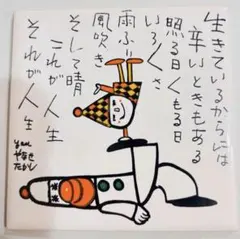 生きているからには
辛いときもある
照る日くもる日
いろいろさ
雨ふり
風吹き
そして晴
これが人生
それが人生
やなせ
たかし